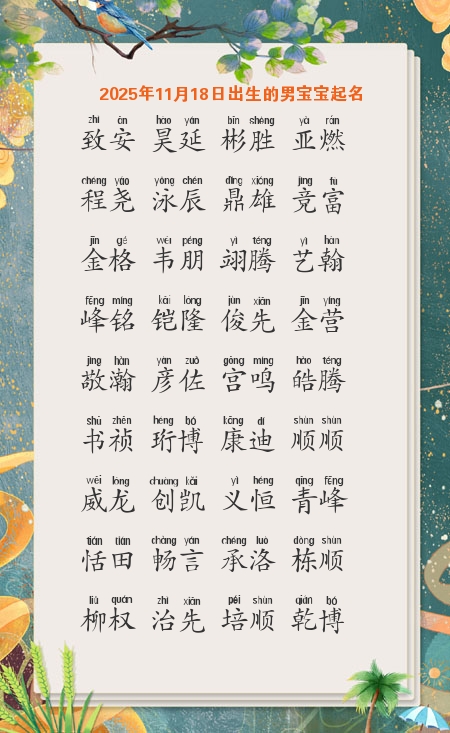 2025年11月18日出生的男宝宝起名
zhì ān hào yán bīn shèng yà rán
致安 昊延 彬胜 亚燃
chéng yáo yǒng chén dǐng xióng jìng fù
程尧 泳辰 鼎雄 竞富
jīn gé wéi péng yì téng yì hàn
金格 韦朋 翊腾 艺翰
fēng míng kǎi lóng jùn xiān jīn yíng
峰铭 铠隆 俊先 金营
jìng hàn yàn zuǒ gōng míng hào téng
敬瀚 彦佐 宫鸣 皓腾
shū zhēn héng bó kāng dí shùn shùn
书祯 珩博 康迪 顺顺
wēi lóng chuàng kǎi yì héng qīng fēng
威龙 创凯 义恒 青峰
tián tián chàng yán chéng luò dòng shùn
恬田 畅言 承洛 栋顺
liǔ quán zhì xiān péi shùn qián bó
柳权 治先 培顺 乾博